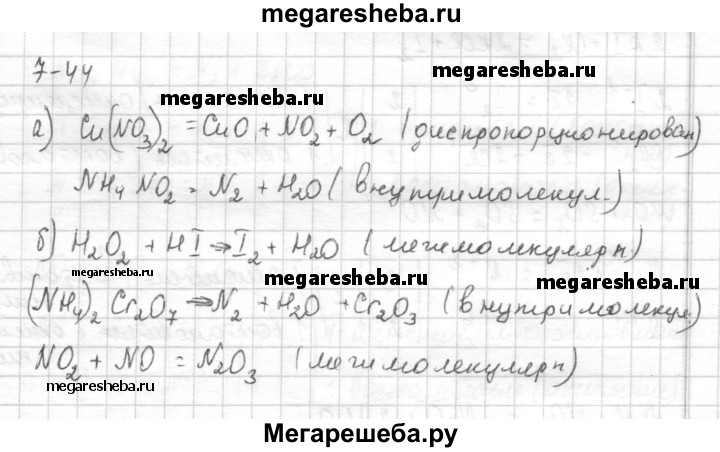 megaresheba.ru
7-44
megaresheba.ru
а) Cu(NO3)2 = CuO + NO2 + O2 (диспропорционирован)
NH4 NO2 = N2 + H2O (внутримолекул.)
б) H2O2 + HI ⇒ I2 + H2O (мегимолекулярн)
megaresheba.ru
megaresheba.ru
(NH4)2 Cr2O7 ⇒ N2 + H2O + Cr2O3 (внутримолекул)
NO2 + NO = N2O3 (мегимолекулярн)
megaresheba.ru
Мегарешеба.ру